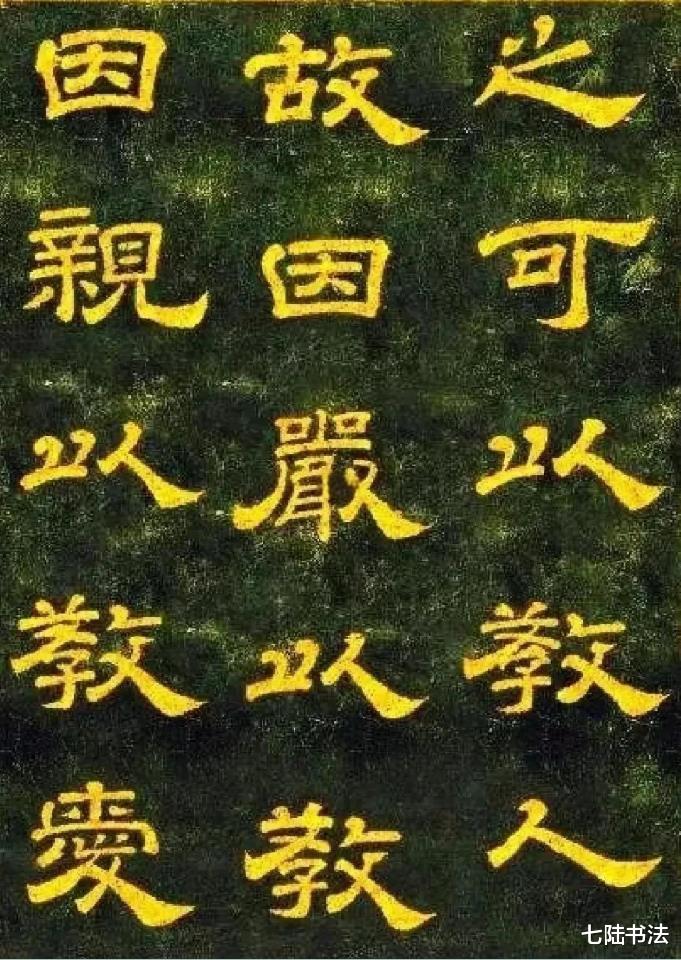 之可以教人
故因嚴以教
因親以教愛
七陆书法